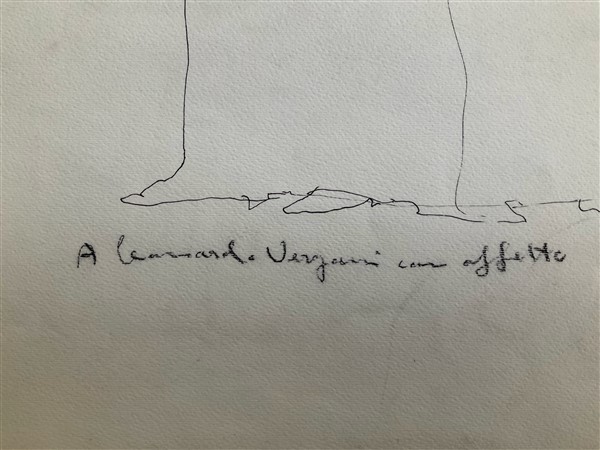 A Leonardo Vergani con affetto